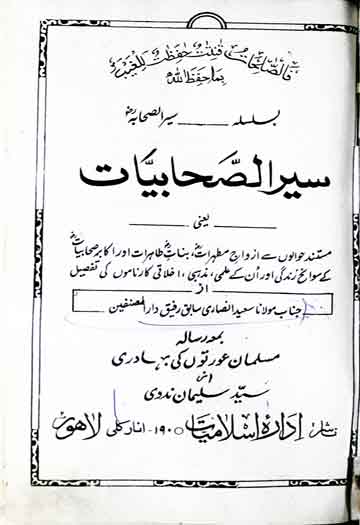 فَالصّٰلِحٰتُ قٰنِتٰتٌ حٰفِظٰتٌ لِّلْغَيْبِ
بِمَا حَفِظَ اللّٰهُ
بسلسلہ ــــــ سیر الصحابہؓ
سیر الصحابیات
یعنی
مستند حوالوں سے ازواج مطہراتؓ، بناتؓ طاہرات اور اکابر صحابیاتؓ
کے سوانح زندگی اور اُن کے علمی، مذہبی، اخلاقی کارناموں کی تفصیل
از
جناب مولانا سعید انصاری سابق رفیق دار المصنفین
بمعہ رسالہ
مسلمان عورتوں کی بہادری
از
سیّد سلیمان ندوی
ناشر ادارۂ اسلامیات ۱۹۰ - انار کلی لاہور